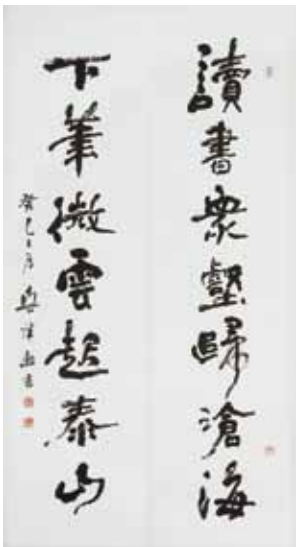 讀書衆壑歸滄海
下筆微雲起泰山
癸巳之